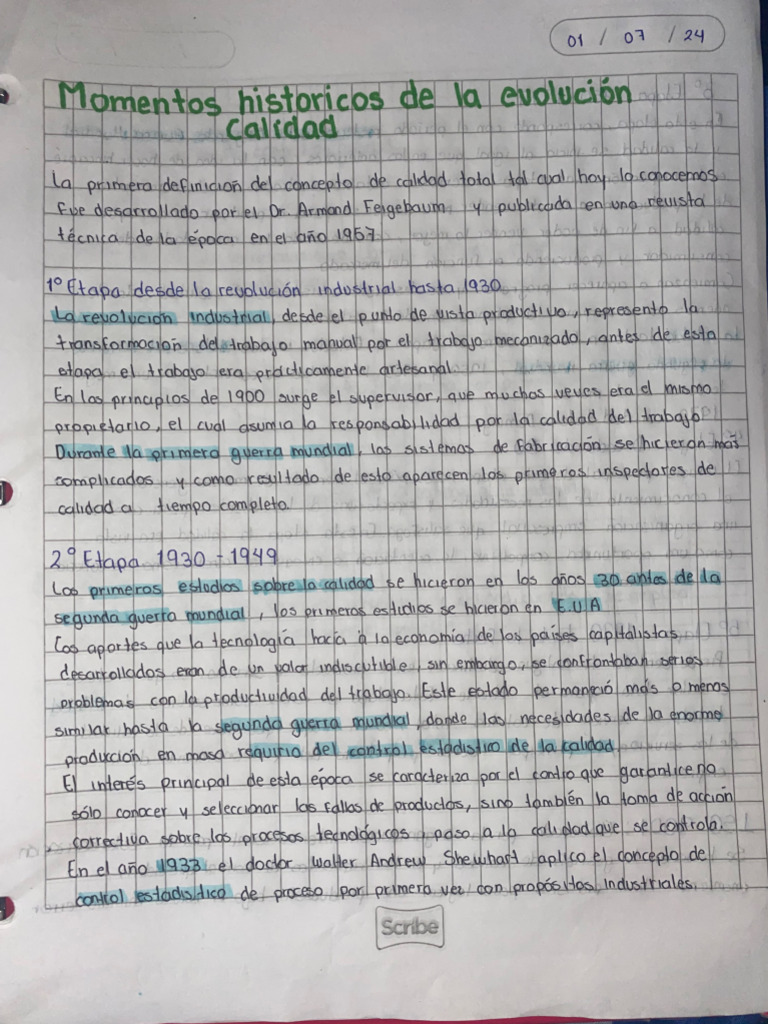 01 / 07 / 24
Momentos historicos de la evolución
calidad
La primera definicion del concepto de calidad total tal cual hoy lo conocemos
fue desarrollado por el Dr. Armand Feigebaum y publicada en una revista
técnica de la época en el año 1957
1º Etapa desde la revolución industrial hasta 1930
La revolucion industrial, desde el punto de vista productivo, represento la
transformación del trabajo manual por el trabajo mecanizado, antes de esta
etapa el trabajo era prácticamente artesanal
En los principios de 1900 surge el supervisor, que muchas veves era el mismo
propietario, el cual asumia la responsabilidad por la calidad del trabajo
Durante la primera guerra mundial, los sistemas de fabricación se hicieron más
complicados y como resultado de esto aparecen los primeros inspectores de
calidad a tiempo completo
2º Etapa 1930 - 1949
Los primeros estudios sobre la calidad se hicieron en los años 30 antes de la
segunda guerra mundial, los primeros estudios se hicieron en E.U.A
Los aportes que la tecnología hacía a la economía de los países capitalistas
desarrollados eran de un valor indiscutible, sin embargo, se confrontaban serios
problemas con la productividad del trabajo. Este estado permaneció más o menos
similar hasta la segunda guerra mundial, donde las necesidades de la enorme
producción en masa requirio del control estadistico de la calidad
El interés principal de esta época se caracteriza por el contro que garantice no
sólo conocer y seleccionar los fallos de productos, sino también la toma de acción
correctiva sobre los procesos tecnológicos, paso a la calidad que se controla.
En el año 1933 el doctor Walter Andrew Shewhart aplico el concepto de
control estadistico de proceso por primera vez con propósitos industriales.
Scribe